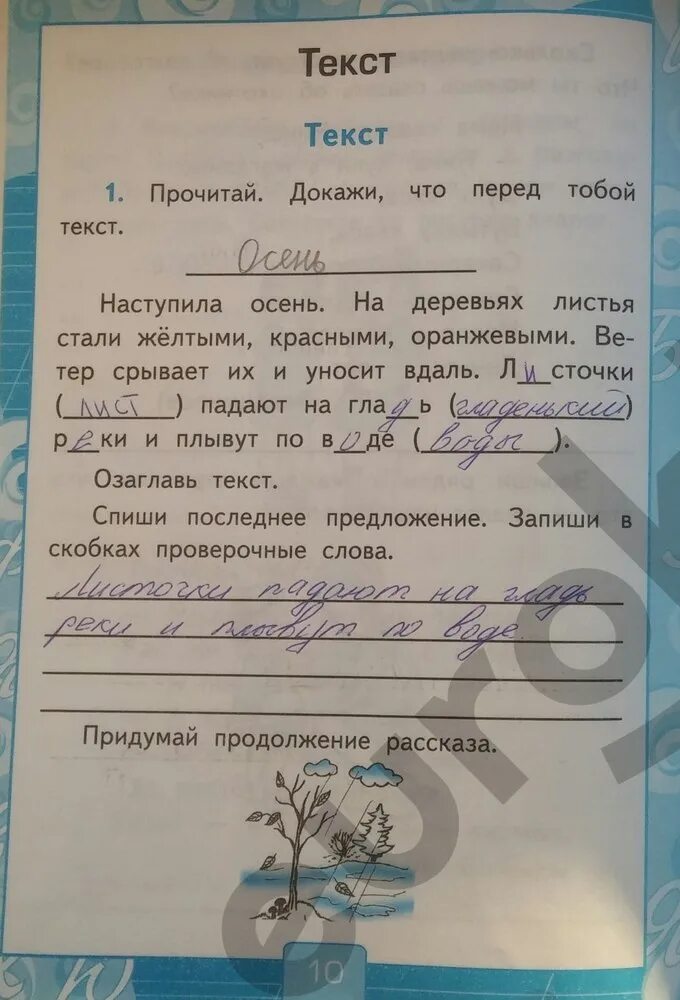 Текст
Текст
1. Прочитай. Докажи, что перед тобой
текст.
Осень
Наступила осень. На деревьях листья
стали жёлтыми, красными, оранжевыми. Ве-
тер срывает их и уносит вдаль. Листочки
(лист) падают на гладь (гладенький)
реки и плывут по воде (воды).
Озаглавь текст.
Спиши последнее предложение. Запиши в
скобках проверочные слова.
Листочки падают на гладь
реки и плывут по воде
Придумай продолжение рассказа.
10